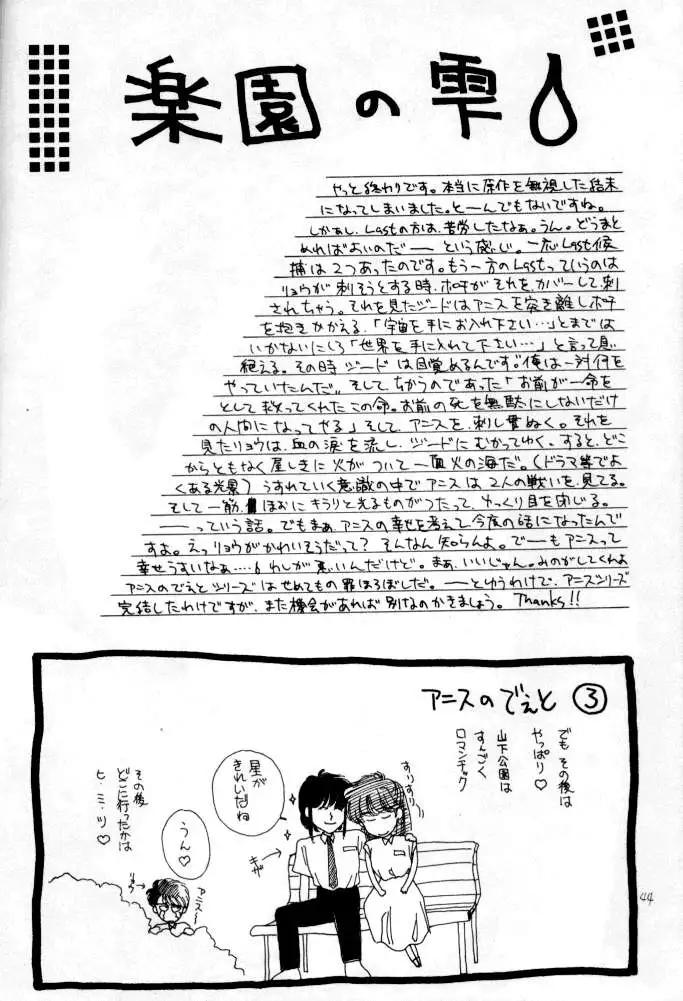 楽園の雫
やっと終わりです。本当に原作を無視した結末
になってしまいました。と──んでもないですね。
しかぁし、Lastの方は、苦労したなぁ。うん。どうまと
めればよいのだ── という感じ。一応Last候
補は2つあったのです。もう一方のLastっていうのは
リョウが刺そうとする時、ポチがそれをカバーして刺
されちゃう。それを見たジードはアニスを突き離しポチ
を抱きかかえる。「宇宙を手にお入れ下さい…」とまでは
いかないにしろ「世界を手に入れて下さい…」と言って息
絶える。その時 ジードは目覚めるんです。"俺は一対何を
やっていたんだ"。そしてちかうのであった「お前が一命を
として救ってくれたこの命。お前の死を無駄にしないだけ
の人間になってやる」そして、アニスを、刺し貫ぬく。それを
見たリョウは、血の涙を流し、ジードにむかってゆく。すると、どこ
からともなく屋しきに火がついて一面火の海だ。(ドラマ等でよ
くある光景) うすれていく意識の中でアニスは2人の戦いを見てる。
そして一筋、ほおにキラリと光るものがつたって、ゆっくり目を閉じる。
──っていう話。でもまぁ、アニスの幸せを考えて今度の話になったんで
すよ。えっリョウがかわいそうだって? そんなん知らんよ。でーもアニスって
幸せうすいなぁ……わしが悪いんだけど。まぁ、いいじゃん。みのがしてくれよ
アニスのでえとシリーズはせめてもの罪ほろぼしだ。──とゆうわけで、アニスシリーズ
完結したわけですが、また機会があれば別なのかきましょう。Thanks!!
アニスのでぇと ③
でも その後は
やっぱり♡
山下公園は
すんごく
ロマンチック
すりすり
星が
きれいだね
キザ
うん♡
アニス〜
リョウ
その後
どこに行ったかは
ヒ・ミ・ツ♡
44